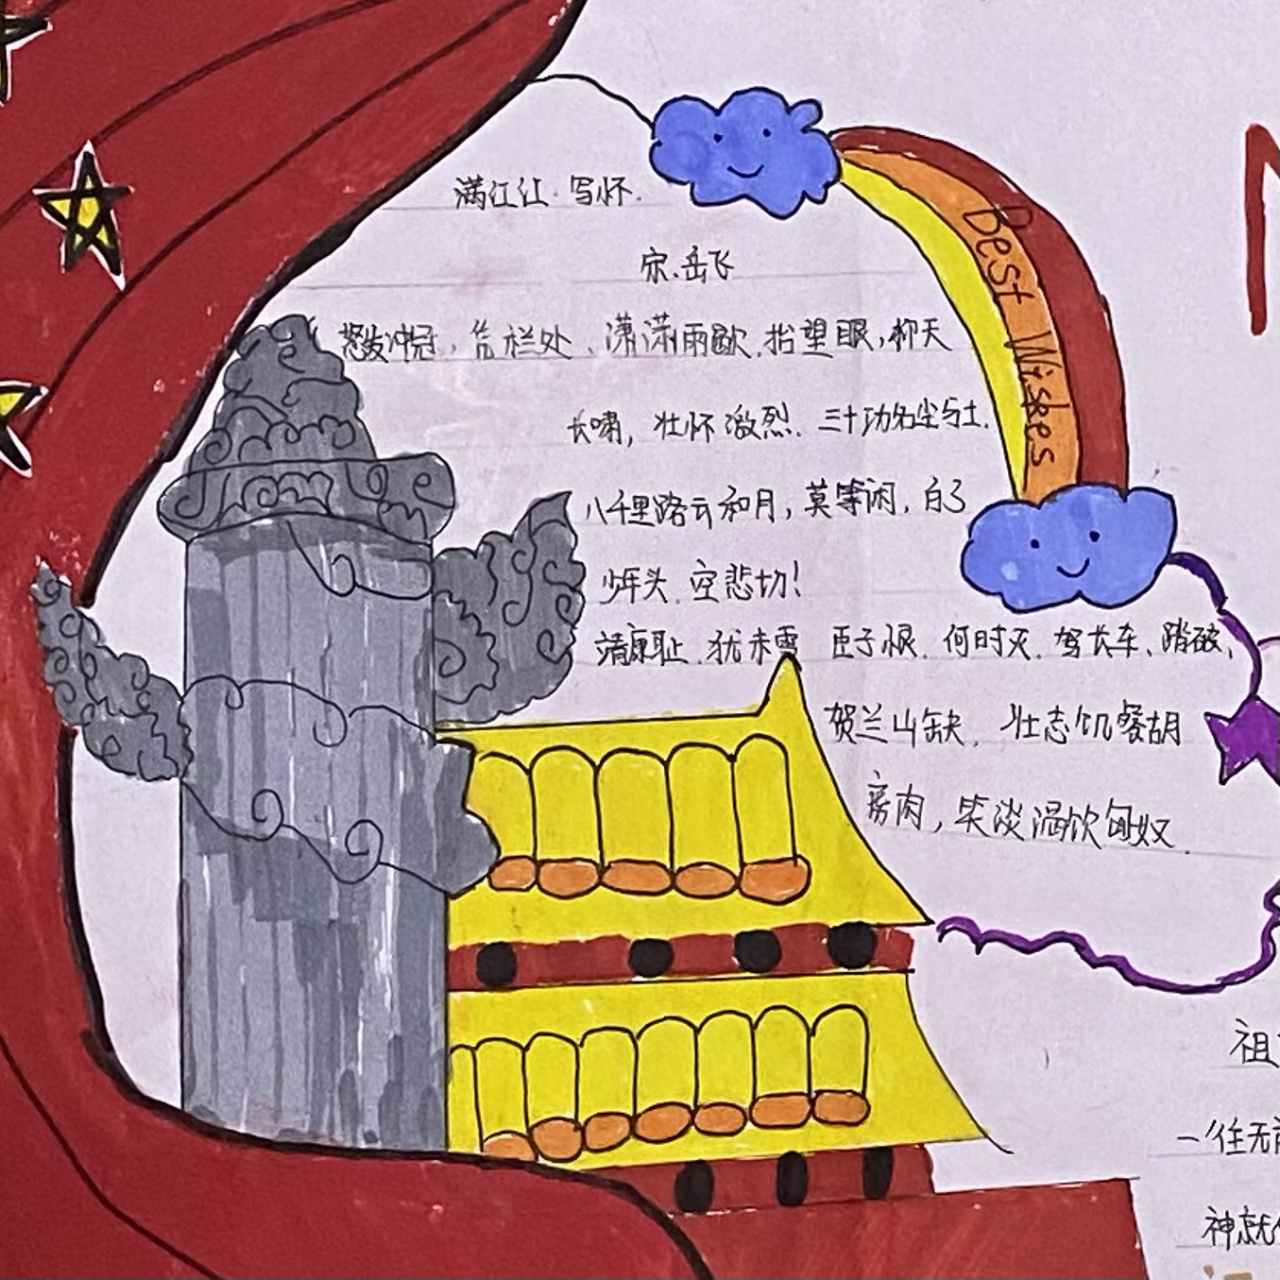 满江让·写怀.
宋.岳飞
怒发冲冠,凭栏处、潇潇雨歇.抬望眼,仰天
长啸,壮怀激烈.三十功名尘与土.
八千里路云和月,莫等闲,白了
少年头.空悲切!
靖康耻.犹未雪 臣子恨.何时灭.驾长车、踏破、
贺兰山缺.壮志饥餐胡
房肉,笑谈渴饮匈奴.
Best Wishes
祖
一往无前
神就